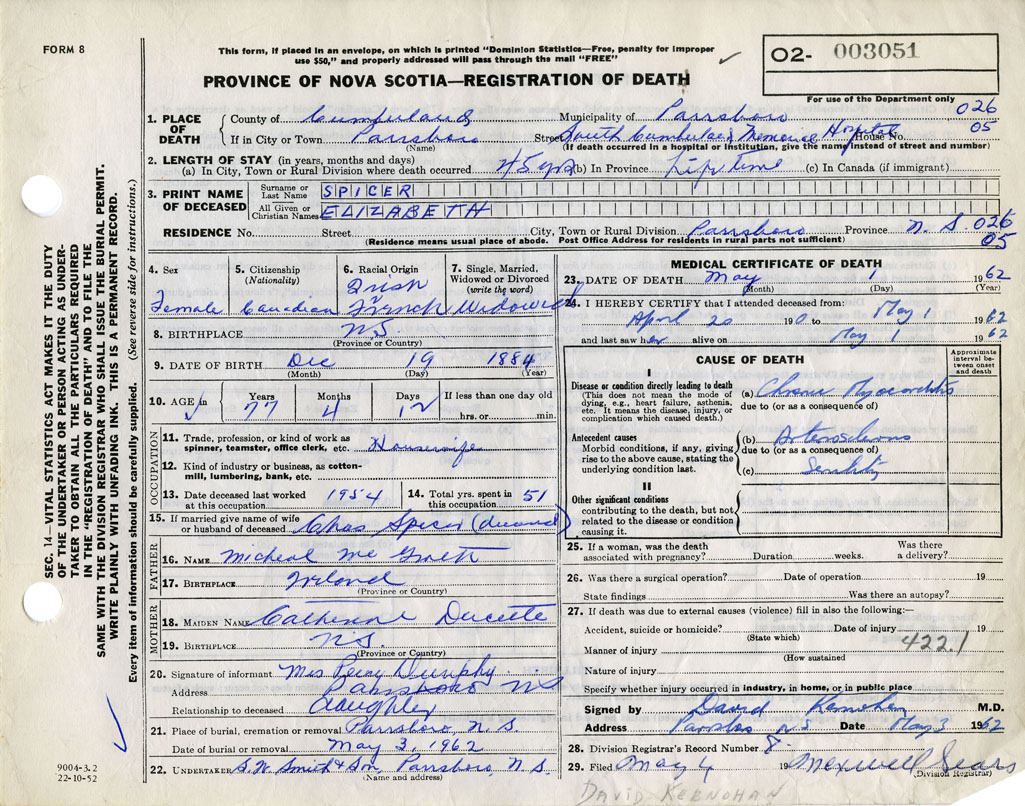 FORM 8
This form, if placed in an envelope, on which is printed "Dominion Statistics—Free, penalty for improper
use $50," and properly addressed will pass through the mail "FREE"
PROVINCE OF NOVA SCOTIA—REGISTRATION OF DEATH
O2- 003051
For use of the Department only
026
05
SEC. 14—VITAL STATISTICS ACT MAKES IT THE DUTY
OF THE UNDERTAKER OR PERSON ACTING AS UNDER-
TAKER TO OBTAIN ALL THE PARTICULARS REQUIRED
IN THE "REGISTRATION OF DEATH" AND TO FILE THE
SAME WITH THE DIVISION REGISTRAR WHO SHALL ISSUE THE BURIAL PERMIT.
WRITE PLAINLY WITH UNFADING INK. THIS IS A PERMANENT RECORD.
Every item of information should be carefully supplied. (See reverse side for instructions.)
9004-3.2
22-10-52
1. PLACE OF DEATH County of Cumberland Municipality of Parrsboro
If in City or Town Parrsboro Street South Cumberland Memorial Hospital House No.
(Name) (If death occurred in a hospital or institution, give the name instead of street and number)
2. LENGTH OF STAY (in years, months and days)
(a) In City, Town or Rural Division where death occurred 45 yrs (b) In Province Life time (c) In Canada (if immigrant)
3. PRINT NAME OF DECEASED Surname or Last Name SPICER
All Given or Christian Names ELIZABETH
RESIDENCE No. Street City, Town or Rural Division Parrsboro Province N. S. 026
(Residence means usual place of abode. Post Office Address for residents in rural parts not sufficient) 05
4. Sex Female
5. Citizenship (Nationality) Canadian
6. Racial Origin Irish French
7. Single, Married, Widowed or Divorced (write the word) Widowed
8. BIRTHPLACE N.S.
(Province or Country)
9. DATE OF BIRTH Dec 19 1884
(Month) (Day) (Year)
10. AGE in Years Months Days If less than one day old
77 4 12 hrs. or min.
OCCUPATION
11. Trade, profession, or kind of work as
spinner, teamster, office clerk, etc. Housewife
12. Kind of industry or business, as cotton-
mill, lumbering, bank, etc.
13. Date deceased last worked at this occupation 1954
14. Total yrs. spent in this occupation 51
15. If married give name of wife
or husband of deceased Chas Spicer (deceased)
FATHER
16. NAME Micheal
17. BIRTHPLACE Ireland
(Province or Country)
MOTHER
18. MAIDEN NAME Catherine
19. BIRTHPLACE N.S.
(Province or Country)
20. Signature of informant Mrs Percy Dunphy
Address Parrsboro N S
Relationship to deceased daughter
21. Place of burial, cremation or removal Parrsboro, N. S.
Date of burial or removal May 3, 1962
22. UNDERTAKER S.W. Smith & Son, Parrsboro, N. S.
(Name and address)
MEDICAL CERTIFICATE OF DEATH
23. DATE OF DEATH May 1 1962
(Month) (Day) (Year)
24. I HEREBY CERTIFY that I attended deceased from:
April 20 19 to May 1 1962
and last saw her alive on May 1 1962
CAUSE OF DEATH
Approximate interval between onset and death
I
Disease or condition directly leading to death
(This does not mean the mode of
dying, e.g., heart failure, asthenia,
etc. It means the disease, injury, or
complication which caused death.)
(a) Chronic Myocarditis
due to (or as a consequence of)
Antecedent causes
Morbid conditions, if any, giving
rise to the above cause, stating the
underlying condition last.
(b) Arteriosclerosis
due to (or as a consequence of)
(c) Senility
II
Other significant conditions
contributing to the death, but not
related to the disease or condition
causing it.
25. If a woman, was the death Was there
associated with pregnancy? Duration weeks. a delivery?
26. Was there a surgical operation? Date of operation 19
State findings Was there an autopsy?
27. If death was due to external causes (violence) fill in also the following:—
Accident, suicide or homicide? Date of injury 19
(State which)
Manner of injury 422.1
(How sustained
Nature of injury
Specify whether injury occurred in industry, in home, or in public place
Signed by David Kernohan M.D.
Address Parrsboro N S Date May 3 1962
28. Division Registrar's Record Number 8.
29. Filed May 4 19 Maxwell Sears
(Division Registrar)
DAVID KERNOHAN